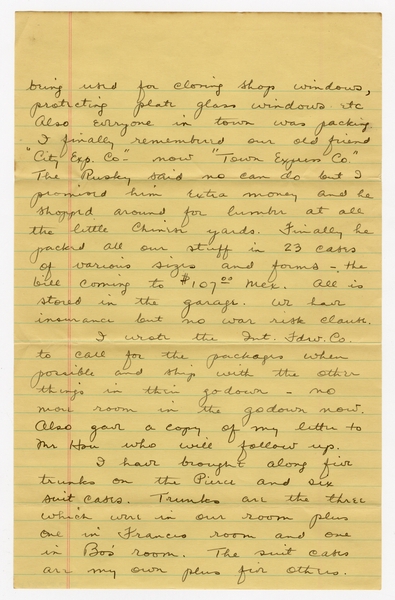 being used for closing shop windows,
protecting plate glass windows etc
Also everyone in town was packing
I finally remembered our old friend
"City Exp. Co" - now "Town Express Co"
The Rusky said no can do but I
promised him extra money and he
shopped around for lumber at all
the little Chinese yards. Finally he
packed all our stuff in 23 cases
of various sizes and forms - the
bill coming to $107.00 Mex. All is
stored in the garage. We have
insurance but no war risk clause.
I wrote the Int. Fdw. Co.
to call for the packages when
possible and ship with the other
things in their godown - no
more room in the godown now.
Also gave a copy of my letter to
Mr Hsu who will follow up.
I have brought along five
trunks on the Pierce and six
suit cases. Trunks are the three
which were in our room plus
one in Francis room and one
in Bo's room. The suit cases
are my own plus five others.